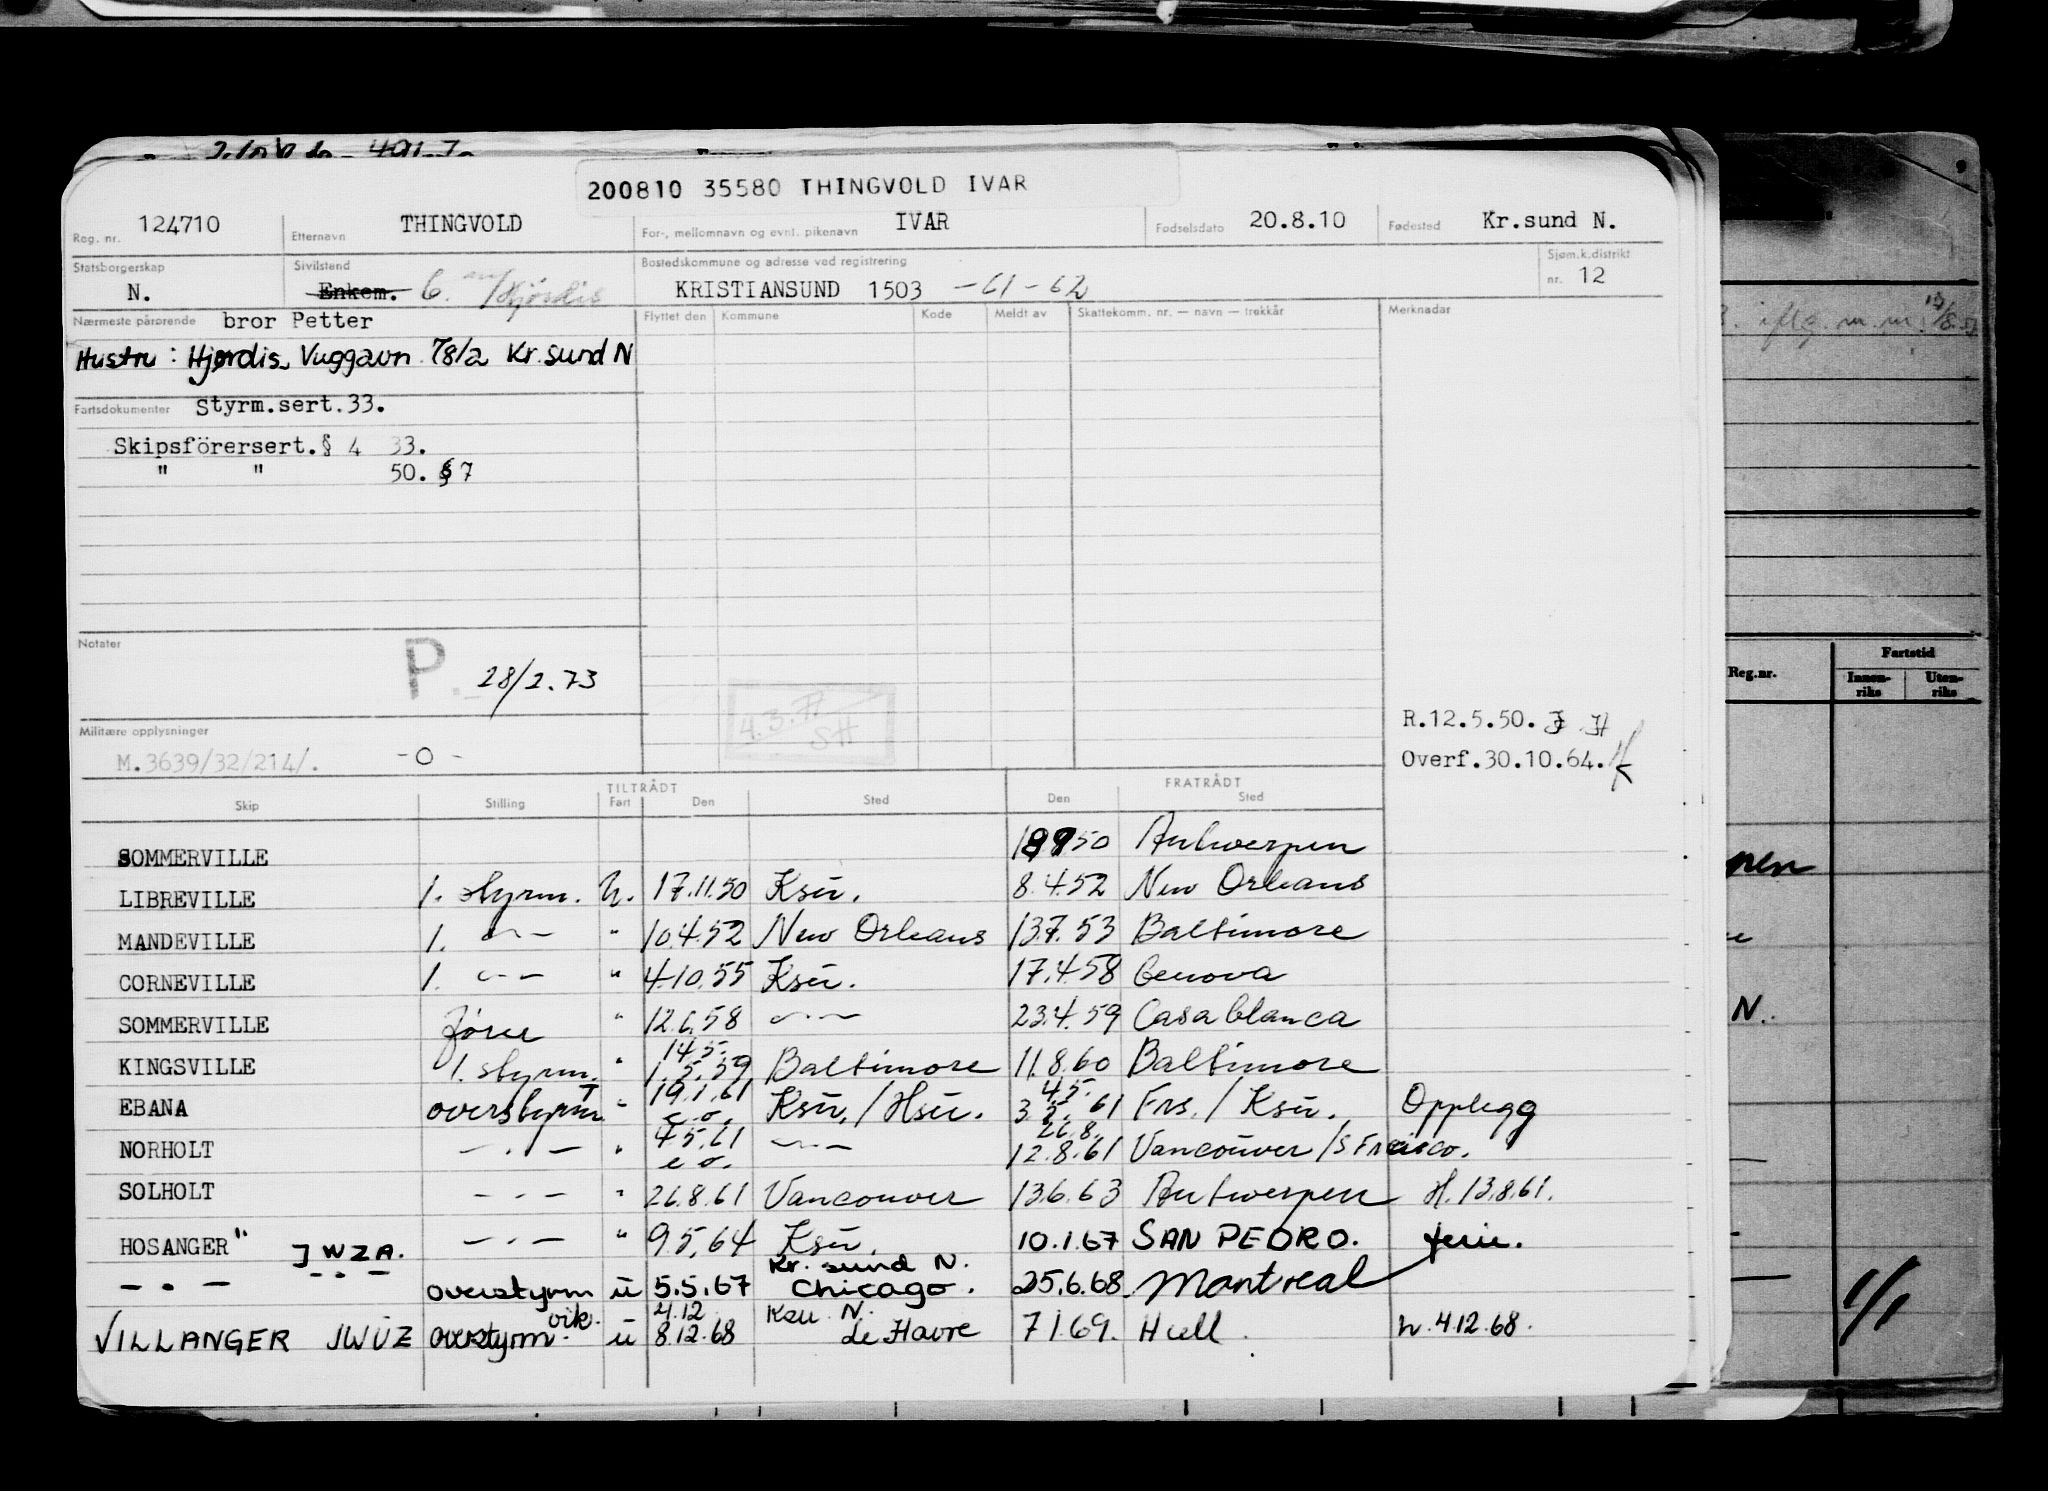 200810 35580 THINGVOLD IVAR
Reg. nr. 124710 Etternavn THINGVOLD For-, mellomnavn og evnt. pikenavn IVAR Fødselsdato 20.8.10 Fødested Kr.sund N.
Statsborgerskap N. Sivilstand Enkem. G. Hjørdis Bostedskommune og adresse ved registrering KRISTIANSUND 1503 -61-62 Sjøm.k.distrikt nr. 12
Nærmeste pårørende bror Petter Flyttet den Kommune Kode Meldt av Skattekomm. nr. — navn — trekkår Merknader
Hustru: Hjørdis, Vuggavn. 78/2 Kr.sund N
Fartsdokumenter Styrm.sert.33.
Skipsførersert.§ 4 33.
" " 50. § 7
Notater P. 28/2.73
4.3.71
SH
R.12.5.50.
Militære opplysninger
M.3639/32/214/. -0-
Overf.30.10.64.
TILTRÅDT FRATRÅDT
Skip Stilling Fart Den Sted Den Sted
SOMMERVILLE 50 Antwerpen
LIBREVILLE 1. styrm. U. 17.11.50 Ksu. 8.4.52 New Orleans
MANDEVILLE 1. —"— " 10.4.52 New Orleans 13.7.53 Baltimore
CORNEVILLE 1. —"— " 4.10.55 Ksu. 17.4.58 Genova
SOMMERVILLE fører " 12.6.58 —"— 23.4.59 Casablanca
KINGSVILLE 1. styrm. " 14.5. 1.5.59 Baltimore 11.8.60 Baltimore
EBANA overstyrm " 19.1.61 e.o. Ksu./Hsu. 4.5. 61 Frs./Ksu. Opplegg
NORHOLT —"— " 4.5.61 e.o. —"— 26.8. 12.8.61 Vancouver/S Fracisco.
SOLHOLT —"— " 26.8.61 Vancouver 13.6.63 Antwerpen H.13.8.61.
HOSANGER" JWZA. —"— " 9.5.64 Ksu. 10.1.67 SAN PEDRO. ferie.
—"— —"— overstyrm ü 5.5.67 Kr. sund N. Chicago. 25.6.68 Montreal
VILLANGER JWUZ overstyrm vik. ü 4.12 8.12.68 Ksu N. Le Havre 7.1.69. Hull. h.4.12.68.
Reg.nr. Fartstid
Innen-riks Uten-riks
N.
1/1